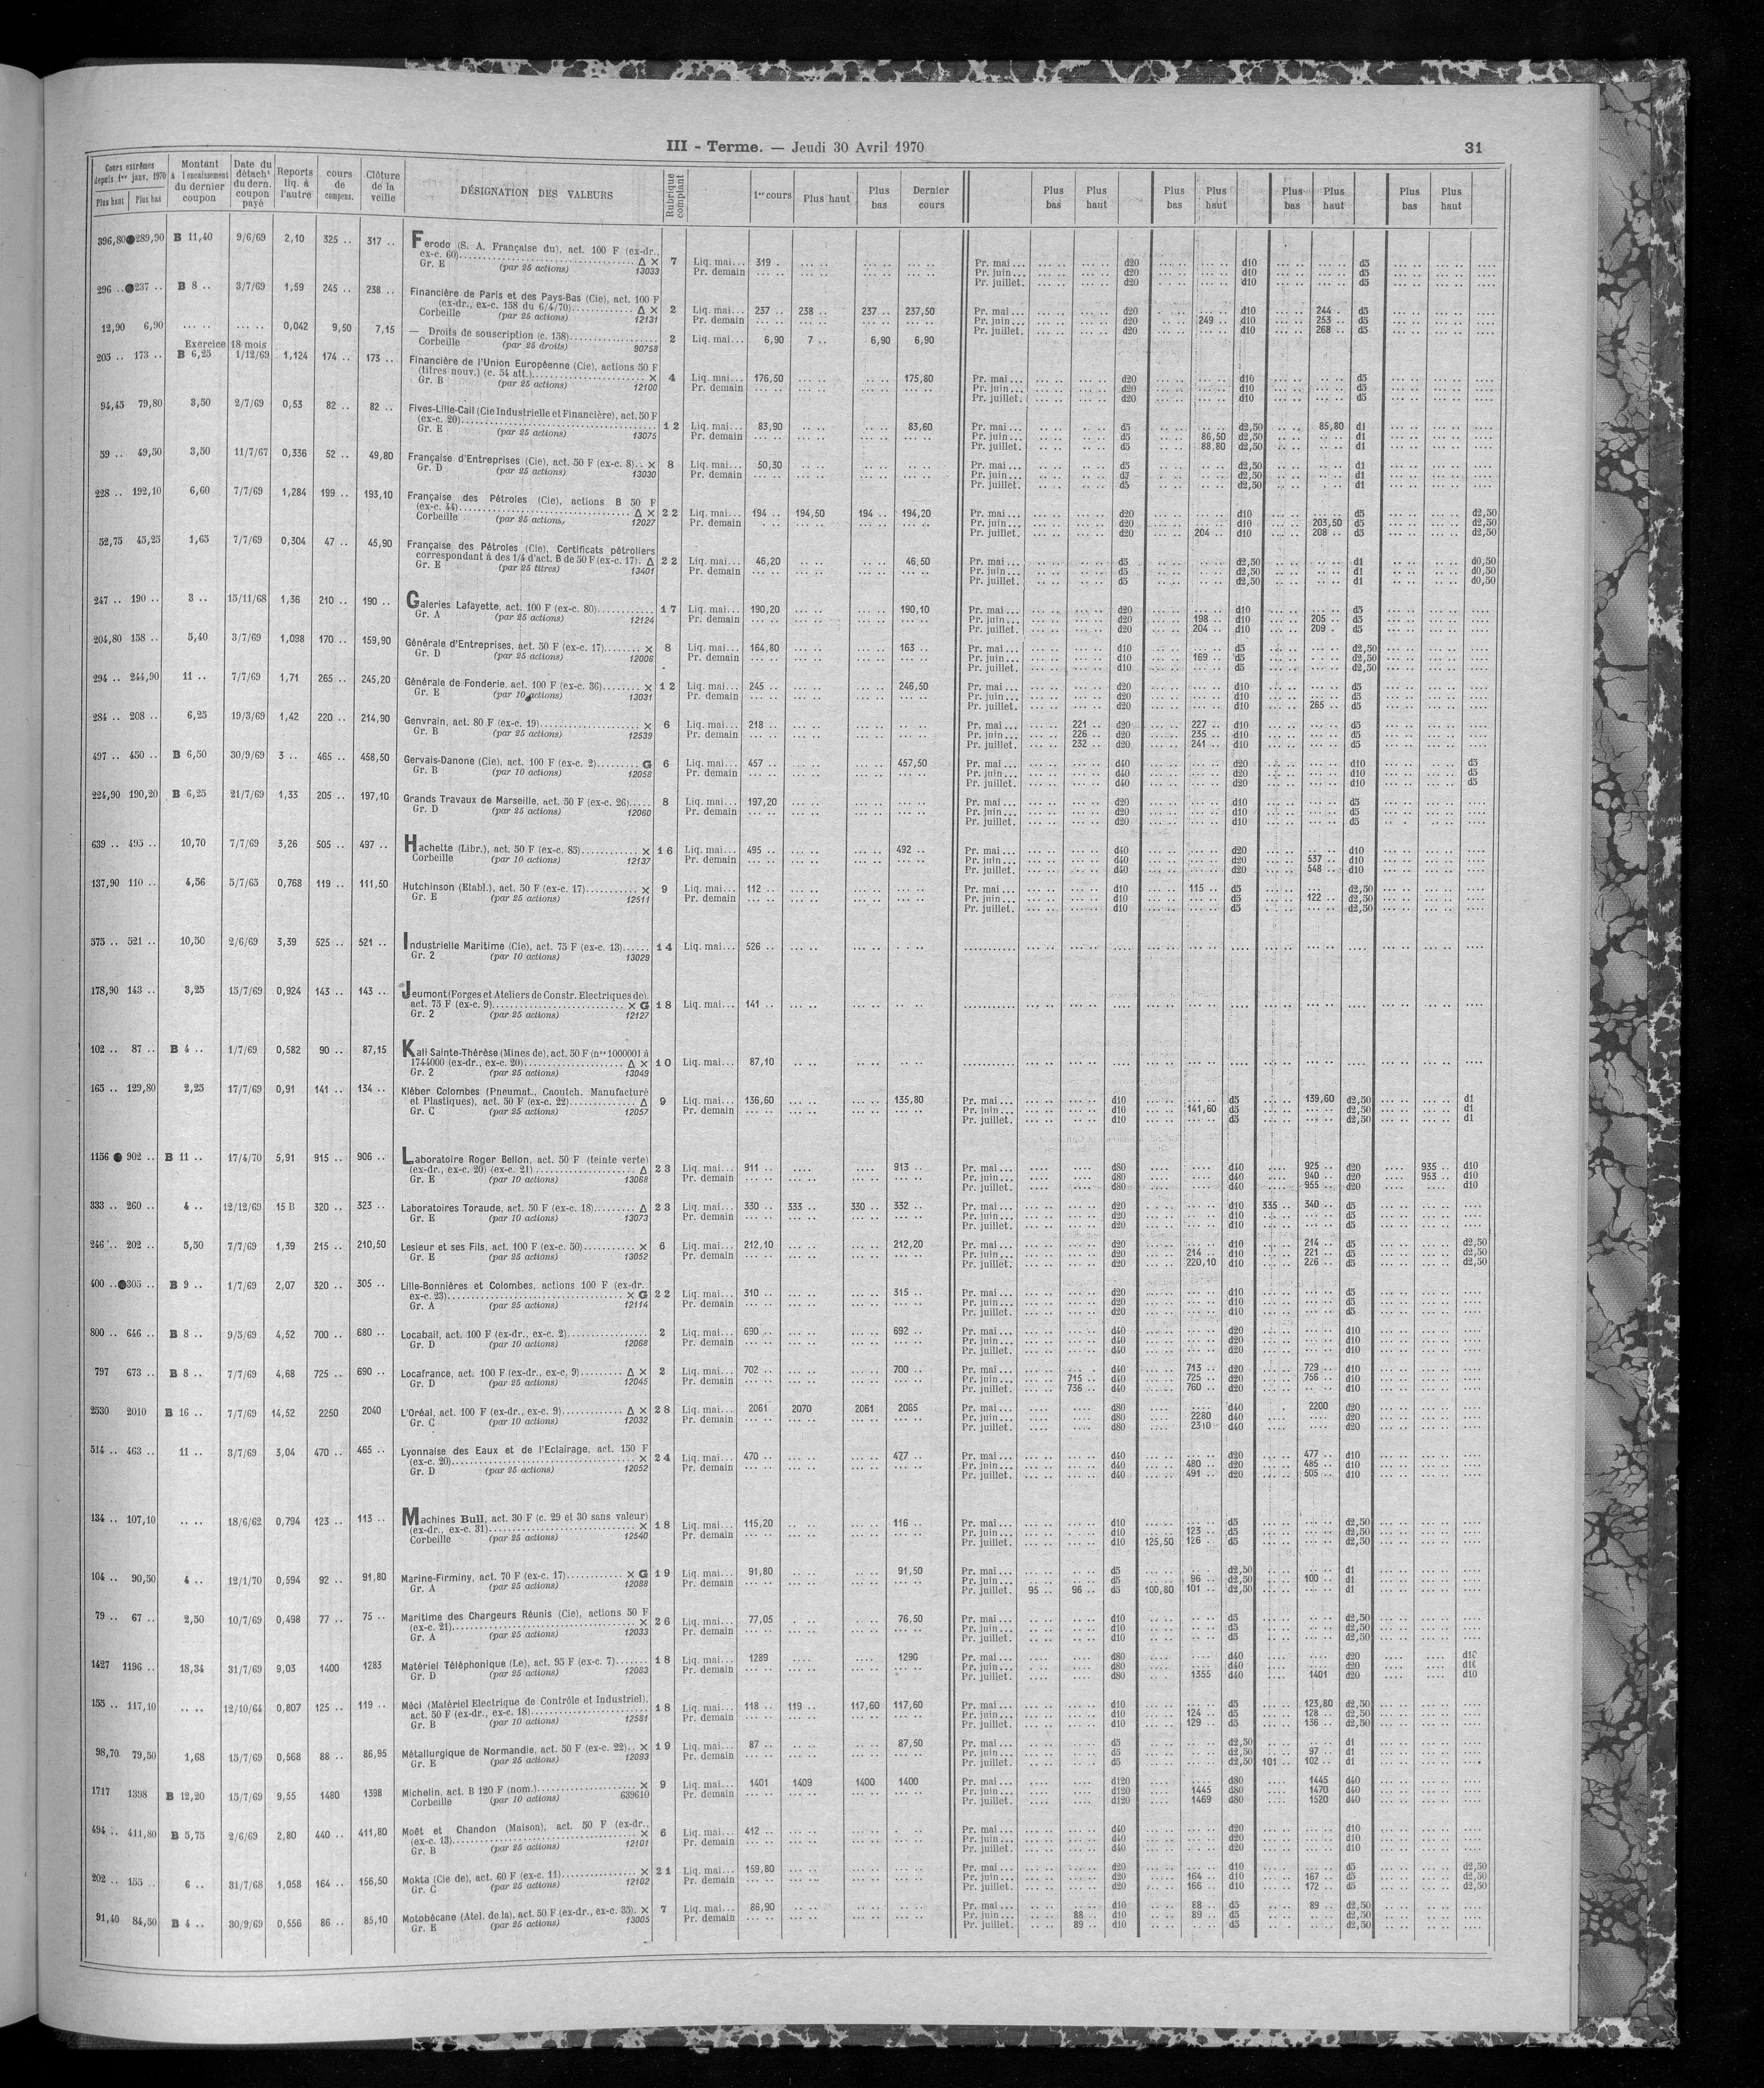 III - Terme. — Jeudi 30 Avril 1970 31
Cours extrêmes depuis 1er janv. 1970 Plus haut Plus bas | Montant à l'encaissement du dernier coupon | Date du détacht du dern. coupon payé | Reports liq. à l'autre | cours de compens. | Clôture de la veille | DÉSIGNATION DES VALEURS | Rubrique comptant | 1er cours | Plus haut | Plus bas | Dernier cours | Plus bas | Plus haut | Plus bas | Plus haut | Plus bas | Plus haut | Plus bas | Plus haut
396,80 289,90 B 11,40 9/6/69 2,10 325 .. 317 .. Ferodo (S. A. Française du), act. 100 F (ex-dr., ex-c. 60) Δ ×
Gr. E (par 25 actions) 13033 7 Liq. mai... 319 . Pr. mai ... d20 d10 d5
Pr. demain Pr. juin ... d20 d10 d5
Pr. juillet. d20 d10 d5
296 .. 237 .. B 8 .. 3/7/69 1,59 245 .. 238 .. Financière de Paris et des Pays-Bas (Cie), act. 100 F
(ex-dr., ex-c. 158 du 6/4/70) Δ ×
Corbeille (par 25 actions) 12131 2 Liq. mai... 237 .. 238 .. 237 .. 237,50 Pr. mai ... d20 d10 244 .. d5
Pr. demain Pr. juin ... d20 249 .. d10 253 .. d5
Pr. juillet. d20 d10 268 .. d5
12,90 6,90 0,042 9,50 7,15 — Droits de souscription (c. 158)
Corbeille (par 25 droits) 90758 2 Liq. mai... 6,90 7 .. 6,90 6,90
Exercice 18 mois
205 .. 173 .. B 6,25 1/12/69 1,124 174 .. 173 .. Financière de l'Union Européenne (Cie), actions 50 F
(titres nouv.) (c. 54 att.) ×
Gr. B (par 25 actions) 12100 4 Liq. mai... 176,50 175,80 Pr. mai ... d20 d10 d5
Pr. demain Pr. juin ... d20 d10 d5
Pr. juillet. d20 d10 d5
94,45 79,80 3,50 2/7/69 0,53 82 .. 82 .. Fives-Lille-Cail (Cie Industrielle et Financière), act. 50 F
(ex-c. 20)
Gr. E (par 25 actions) 13075 12 Liq. mai... 83,90 83,60 Pr. mai ... d5 d2,50 85,80 d1
Pr. demain Pr. juin ... d5 86,50 d2,50 d1
Pr. juillet. d5 88,80 d2,50 d1
59 .. 49,50 3,50 11/7/67 0,336 52 .. 49,80 Française d'Entreprises (Cie), act. 50 F (ex-c. 8) ×
Gr. D (par 25 actions) 13030 8 Liq. mai... 50,30 Pr. mai ... d5 d2,50 d1
Pr. demain Pr. juin ... d5 d2,50 d1
Pr. juillet. d5 d2,50 d1
228 .. 192,10 6,60 7/7/69 1,284 199 .. 193,10 Française des Pétroles (Cie), actions B 50 F
(ex-c. 44) Δ ×
Corbeille (par 25 actions) 12027 22 Liq. mai... 194 .. 194,50 194 .. 194,20 Pr. mai ... d20 d10 d5 d2,50
Pr. demain Pr. juin ... d20 d10 203,50 d5 d2,50
Pr. juillet. d20 204 .. d10 208 .. d5 d2,50
52,75 45,25 1,65 7/7/69 0,304 47 .. 45,90 Française des Pétroles (Cie), Certificats pétroliers
correspondant à des 1/4 d'act. B de 50 F (ex-c. 17). Δ
Gr. E (par 25 titres) 13401 22 Liq. mai... 46,20 46,50 Pr. mai ... d5 d2,50 d1 d0,50
Pr. demain Pr. juin ... d5 d2,50 d1 d0,50
Pr. juillet. d5 d2,50 d1 d0,50
247 .. 190 .. 3 .. 15/11/68 1,36 210 .. 190 .. Galeries Lafayette, act. 100 F (ex-c. 80)
Gr. A (par 25 actions) 12124 17 Liq. mai... 190,20 190,10 Pr. mai ... d20 d10 d5
Pr. demain Pr. juin ... d20 198 .. d10 205 .. d5
Pr. juillet. d20 204 .. d10 209 . d5
204,80 158 .. 5,40 3/7/69 1,098 170 .. 159,90 Générale d'Entreprises, act. 50 F (ex-c. 17) ×
Gr. D (par 25 actions) 12006 8 Liq. mai... 164,80 163 .. Pr. mai ... d10 d5 d2,50
Pr. demain Pr. juin ... d10 169 .. d5 d2,50
Pr. juillet. d10 d5 d2,50
294 .. 244,90 11 .. 7/7/69 1,71 265 .. 245,20 Générale de Fonderie, act. 100 F (ex-c. 36) ×
Gr. E (par 10 actions) 13031 12 Liq. mai... 245 .. 246,50 Pr. mai ... d20 d10 d5
Pr. demain Pr. juin ... d20 d10 d5
Pr. juillet. d20 d10 265 .. d5
284 .. 208 .. 6,25 19/3/69 1,42 220 .. 214,90 Genvrain, act. 80 F (ex-c. 19) ×
Gr. B (par 25 actions) 12539 6 Liq. mai... 218 .. Pr. mai ... 221 .. d20 227 .. d10 d5
Pr. demain Pr. juin ... 226 .. d20 235 .. d10 d5
Pr. juillet. 232 .. d20 241 .. d10 d5
497 .. 450 .. B 6,50 30/9/69 3 .. 465 .. 458,50 Gervais-Danone (Cie), act. 100 F (ex-c. 2) G
Gr. B (par 10 actions) 12058 6 Liq. mai... 457 .. 457,50 Pr. mai ... d40 d20 d10 d5
Pr. demain Pr. juin ... d40 d20 d10 d5
Pr. juillet. d40 d20 d10 d5
224,90 190,20 B 6,25 21/7/69 1,33 205 .. 197,10 Grands Travaux de Marseille, act. 50 F (ex-c. 26)
Gr. D (par 25 actions) 12060 8 Liq. mai... 197,20 Pr. mai ... d20 d10 d5
Pr. demain Pr. juin ... d20 d10 d5
Pr. juillet. d20 d10 d5
639 .. 495 .. 10,70 7/7/69 3,26 505 .. 497 .. Hachette (Libr.), act. 50 F (ex-c. 85) ×
Corbeille (par 10 actions) 12137 16 Liq. mai... 495 .. 492 .. Pr. mai ... d40 d20 d10
Pr. demain Pr. juin ... d40 d20 537 .. d10
Pr. juillet. d40 d20 548 .. d10
137,90 110 .. 4,56 5/7/65 0,768 119 .. 111,50 Hutchinson (Etabl.), act. 50 F (ex-c. 17) ×
Gr. E (par 25 actions) 12511 9 Liq. mai... 112 .. Pr. mai ... d10 115 .. d5 d2,50
Pr. demain Pr. juin ... d10 d5 122 .. d2,50
Pr. juillet. d10 d5 d2,50
575 .. 521 .. 10,50 2/6/69 3,39 525 .. 521 .. Industrielle Maritime (Cie), act. 75 F (ex-c. 13)
Gr. 2 (par 10 actions) 13029 14 Liq. mai... 526 ..
178,90 143 .. 3,25 15/7/69 0,924 143 .. 143 .. Jeumont (Forges et Ateliers de Constr. Electriques de)
act. 75 F (ex-c. 9) × G
Gr. 2 (par 25 actions) 12127 18 Liq. mai... 141 ..
102 .. 87 .. B 4 .. 1/7/69 0,582 90 .. 87,15 Kali Sainte-Thérèse (Mines de), act. 50 F (nos 1000001 à
1744000 (ex-dr., ex-c. 20) Δ ×
Gr. 2 (par 25 actions) 13049 10 Liq. mai... 87,10
165 .. 129,80 2,25 17/7/69 0,91 141 .. 134 .. Kléber Colombes (Pneumat., Caoutch. Manufacturé
et Plastiques), act. 50 F (ex-c. 22) Δ
Gr. C (par 25 actions) 12057 9 Liq. mai... 136,60 135,80 Pr. mai ... d10 d5 139,60 d2,50 d1
Pr. demain Pr. juin ... d10 141,60 d5 d2,50 d1
Pr. juillet. d10 d5 d2,50 d1
1156 902 .. B 11 .. 17/4/70 5,91 915 .. 906 .. Laboratoire Roger Bellon, act. 50 F (teinte verte)
(ex-dr., ex-c. 20) (ex-c. 21) Δ
Gr. E (par 10 actions) 13068 23 Liq. mai... 911 .. 913 .. Pr. mai ... d80 d40 925 .. d20 935 .. d10
Pr. demain Pr. juin ... d80 d40 940 .. d20 953 .. d10
Pr. juillet. d80 d40 955 .. d20 d10
333 .. 260 .. 4 .. 12/12/69 15 B 320 .. 323 .. Laboratoires Toraude, act. 50 F (ex-c. 18) Δ
Gr. E (par 10 actions) 13073 23 Liq. mai... 330 .. 333 .. 330 .. 332 .. Pr. mai ... d20 d10 335 .. 340 .. d5
Pr. demain Pr. juin ... d20 d10 d5
Pr. juillet. d20 d10 d5
246 .. 202 .. 5,50 7/7/69 1,39 215 .. 210,50 Lesieur et ses Fils, act. 100 F (ex-c. 50) ×
Gr. E (par 25 actions) 13052 6 Liq. mai... 212,10 212,20 Pr. mai ... d20 d10 214 .. d5 d2,50
Pr. demain Pr. juin ... d20 214 .. d10 221 .. d5 d2,50
Pr. juillet. 220,10 d10 226 .. d5 d2,50
400 .. 305 .. B 9 .. 1/7/69 2,07 320 .. 305 .. Lille-Bonnières et Colombes, actions 100 F (ex-dr.
ex-c. 23) × G
Gr. A (par 25 actions) 12114 22 Liq. mai... 310 .. 315 .. Pr. mai ... d20 d10 d5
Pr. demain Pr. juin ... d20 d10 d5
Pr. juillet. d20 d10 d5
800 .. 646 .. B 8 .. 9/5/69 4,52 700 .. 680 .. Locabail, act. 100 F (ex-dr., ex-c. 2)
Gr. D (par 10 actions) 12068 2 Liq. mai... 690 .. 692 .. Pr. mai ... d40 d20 d10
Pr. demain Pr. juin ... d40 d20 d10
Pr. juillet. d40 d20 d10
797 673 .. B 8 .. 7/7/69 4,68 725 .. 690 .. Locafrance, act. 100 F (ex-dr., ex-c. 9) Δ ×
Gr. D (par 25 actions) 12045 2 Liq. mai... 702 .. 700 .. Pr. mai ... d40 713 .. d20 729 .. d10
Pr. demain Pr. juin ... 715 .. d40 725 .. d20 756 .. d10
Pr. juillet. 736 .. d40 760 .. d20 d10
2530 2010 B 16 .. 7/7/69 14,52 2250 2040 L'Oréal, act. 100 F (ex-dr., ex-c. 9) Δ ×
Gr. C (par 10 actions) 12032 28 Liq. mai... 2061 2070 2061 2065 Pr. mai ... d80 d40 2200 d20
Pr. demain Pr. juin ... d80 2280 d40 d20
Pr. juillet. d80 2310 d40 d20
514 .. 463 .. 11 .. 3/7/69 3,04 470 .. 465 .. Lyonnaise des Eaux et de l'Eclairage, act. 150 F
(ex-c. 20) ×
Gr. D (par 25 actions) 12052 24 Liq. mai... 470 .. 477 .. Pr. mai ... d40 d20 477 .. d10
Pr. demain Pr. juin ... d40 480 .. d20 485 .. d10
Pr. juillet. d40 491 .. d20 505 .. d10
134 .. 107,10 18/6/62 0,794 123 .. 113 .. Machines Bull, act. 30 F (c. 29 et 30 sans valeur)
(ex-dr., ex-c. 31) ×
Corbeille (par 25 actions) 12540 18 Liq. mai... 115,20 116 .. Pr. mai ... d10 d5 d2,50
Pr. demain Pr. juin ... d10 123 .. d5 d2,50
Pr. juillet. d10 125,50 126 .. d5 d2,50
104 .. 90,50 4 .. 12/1/70 0,594 92 .. 91,80 Marine-Firminy, act. 70 F (ex-c. 17) × G
Gr. A (par 25 actions) 12088 19 Liq. mai... 91,80 91,50 Pr. mai ... d5 d2,50 d1
Pr. demain Pr. juin ... d5 96 .. d2,50 100 .. d1
Pr. juillet. 95 .. 96 .. d5 100,80 101 .. d2,50 d1
79 .. 67 .. 2,50 10/7/69 0,498 77 .. 75 .. Maritime des Chargeurs Réunis (Cie), actions 50 F
(ex-c. 21) ×
Gr. A (par 25 actions) 12033 26 Liq. mai... 77,05 76,50 Pr. mai ... d10 d5 d2,50
Pr. demain Pr. juin ... d10 d5 d2,50
Pr. juillet. d10 d5 d2,50
1427 1196 .. 18,34 31/7/69 9,03 1400 1283 Matériel Téléphonique (Le), act. 95 F (ex-c. 7)
Gr. D (par 25 actions) 12083 18 Liq. mai... 1289 1290 Pr. mai ... d80 d40 d20 d10
Pr. demain Pr. juin ... d80 d40 d20 d10
Pr. juillet. d80 1355 d40 1401 d20 d10
155 .. 117,10 12/10/64 0,807 125 .. 119 .. Méci (Matériel Electrique de Contrôle et Industriel),
act. 50 F (ex-dr., ex-c. 18)
Gr. B (par 10 actions) 12581 18 Liq. mai... 118 .. 119 .. 117,60 117,60 Pr. mai ... d10 d5 123,80 d2,50
Pr. demain Pr. juin ... d10 124 .. d5 128 .. d2,50
Pr. juillet. d10 129 .. d5 136 .. d2,50
98,70 79,50 1,68 15/7/69 0,568 88 .. 86,95 Métallurgique de Normandie, act. 50 F (ex-c. 22) ×
Gr. E (par 25 actions) 12093 19 Liq. mai... 87 .. 87,50 Pr. mai ... d5 d2,50 d1
Pr. demain Pr. juin ... d5 d2,50 97 .. d1
Pr. juillet. d5 d2,50 101 .. 102 .. d1
1717 1398 B 12,20 15/7/69 9,55 1480 1398 Michelin, act. B 120 F (nom.) ×
Corbeille (par 10 actions) 639610 9 Liq. mai... 1401 1409 1400 1400 Pr. mai ... d120 d80 1445 d40
Pr. demain Pr. juin ... d120 1445 d80 1470 d40
Pr. juillet. d120 1469 d80 1520 d40
494 .. 411,80 B 5,75 2/6/69 2,80 440 .. 411,80 Moët et Chandon (Maison), act. 50 F (ex-dr.,
(ex-c. 13) ×
Gr. B (par 25 actions) 12101 6 Liq. mai... 412 .. Pr. mai ... d40 d20 d10
Pr. demain Pr. juin ... d40 d20 d10
Pr. juillet. d40 d20 d10
202 .. 155 .. 6 .. 31/7/68 1,058 164 .. 156,50 Mokta (Cie de), act. 60 F (ex-c. 11) ×
Gr. C (par 25 actions) 12102 21 Liq. mai... 159,80 Pr. mai ... d20 d10 d5 d2,50
Pr. demain Pr. juin ... d20 164 .. d10 167 .. d5 d2,50
Pr. juillet. d20 166 .. d10 172 .. d5 d2,50
91,40 84,50 B 4 .. 30/9/69 0,556 86 .. 85,10 Motobécane (Atel. de la), act. 50 F (ex-dr., ex-c. 35). ×
Gr. E (par 25 actions) 13005 7 Liq. mai... 86,90 Pr. mai ... d10 88 .. d5 89 .. d2,50
Pr. demain Pr. juin ... 88 .. d10 89 .. d5 d2,50
Pr. juillet. 89 .. d10 d5 d2,50